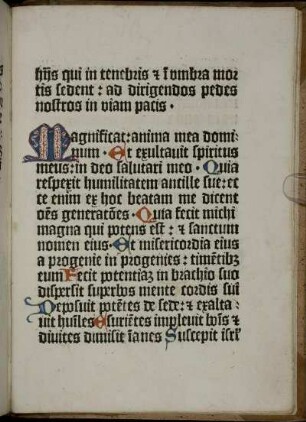 hijs qui in tenebris ⁊ ī vmbra mor
tis sedent : ad dirigendos pedes
nostros in viam pacis .
Magnificat : anima mea domi
num . Et exultauit spiritus
meus : in deo salutari meo . Quia
respexit humilitatem ancille sue : ec
ce enim ex hoc beatam me dicent
oēs generatiōes . Quia fecit michi
magna qui potens est : ⁊ sanctum
nomen eius . Et misericordia eius
a progenie in progenies : timētibꝫ
eum Fecit potentiaꝫ in brachio suo
dispersit superbos mente cordis sui
Deposuit potētes de sede : ⁊ exalta
uit hūiles Esuriētes impleuit bōis ⁊
diuites dimisit īanes Suscepit isrl